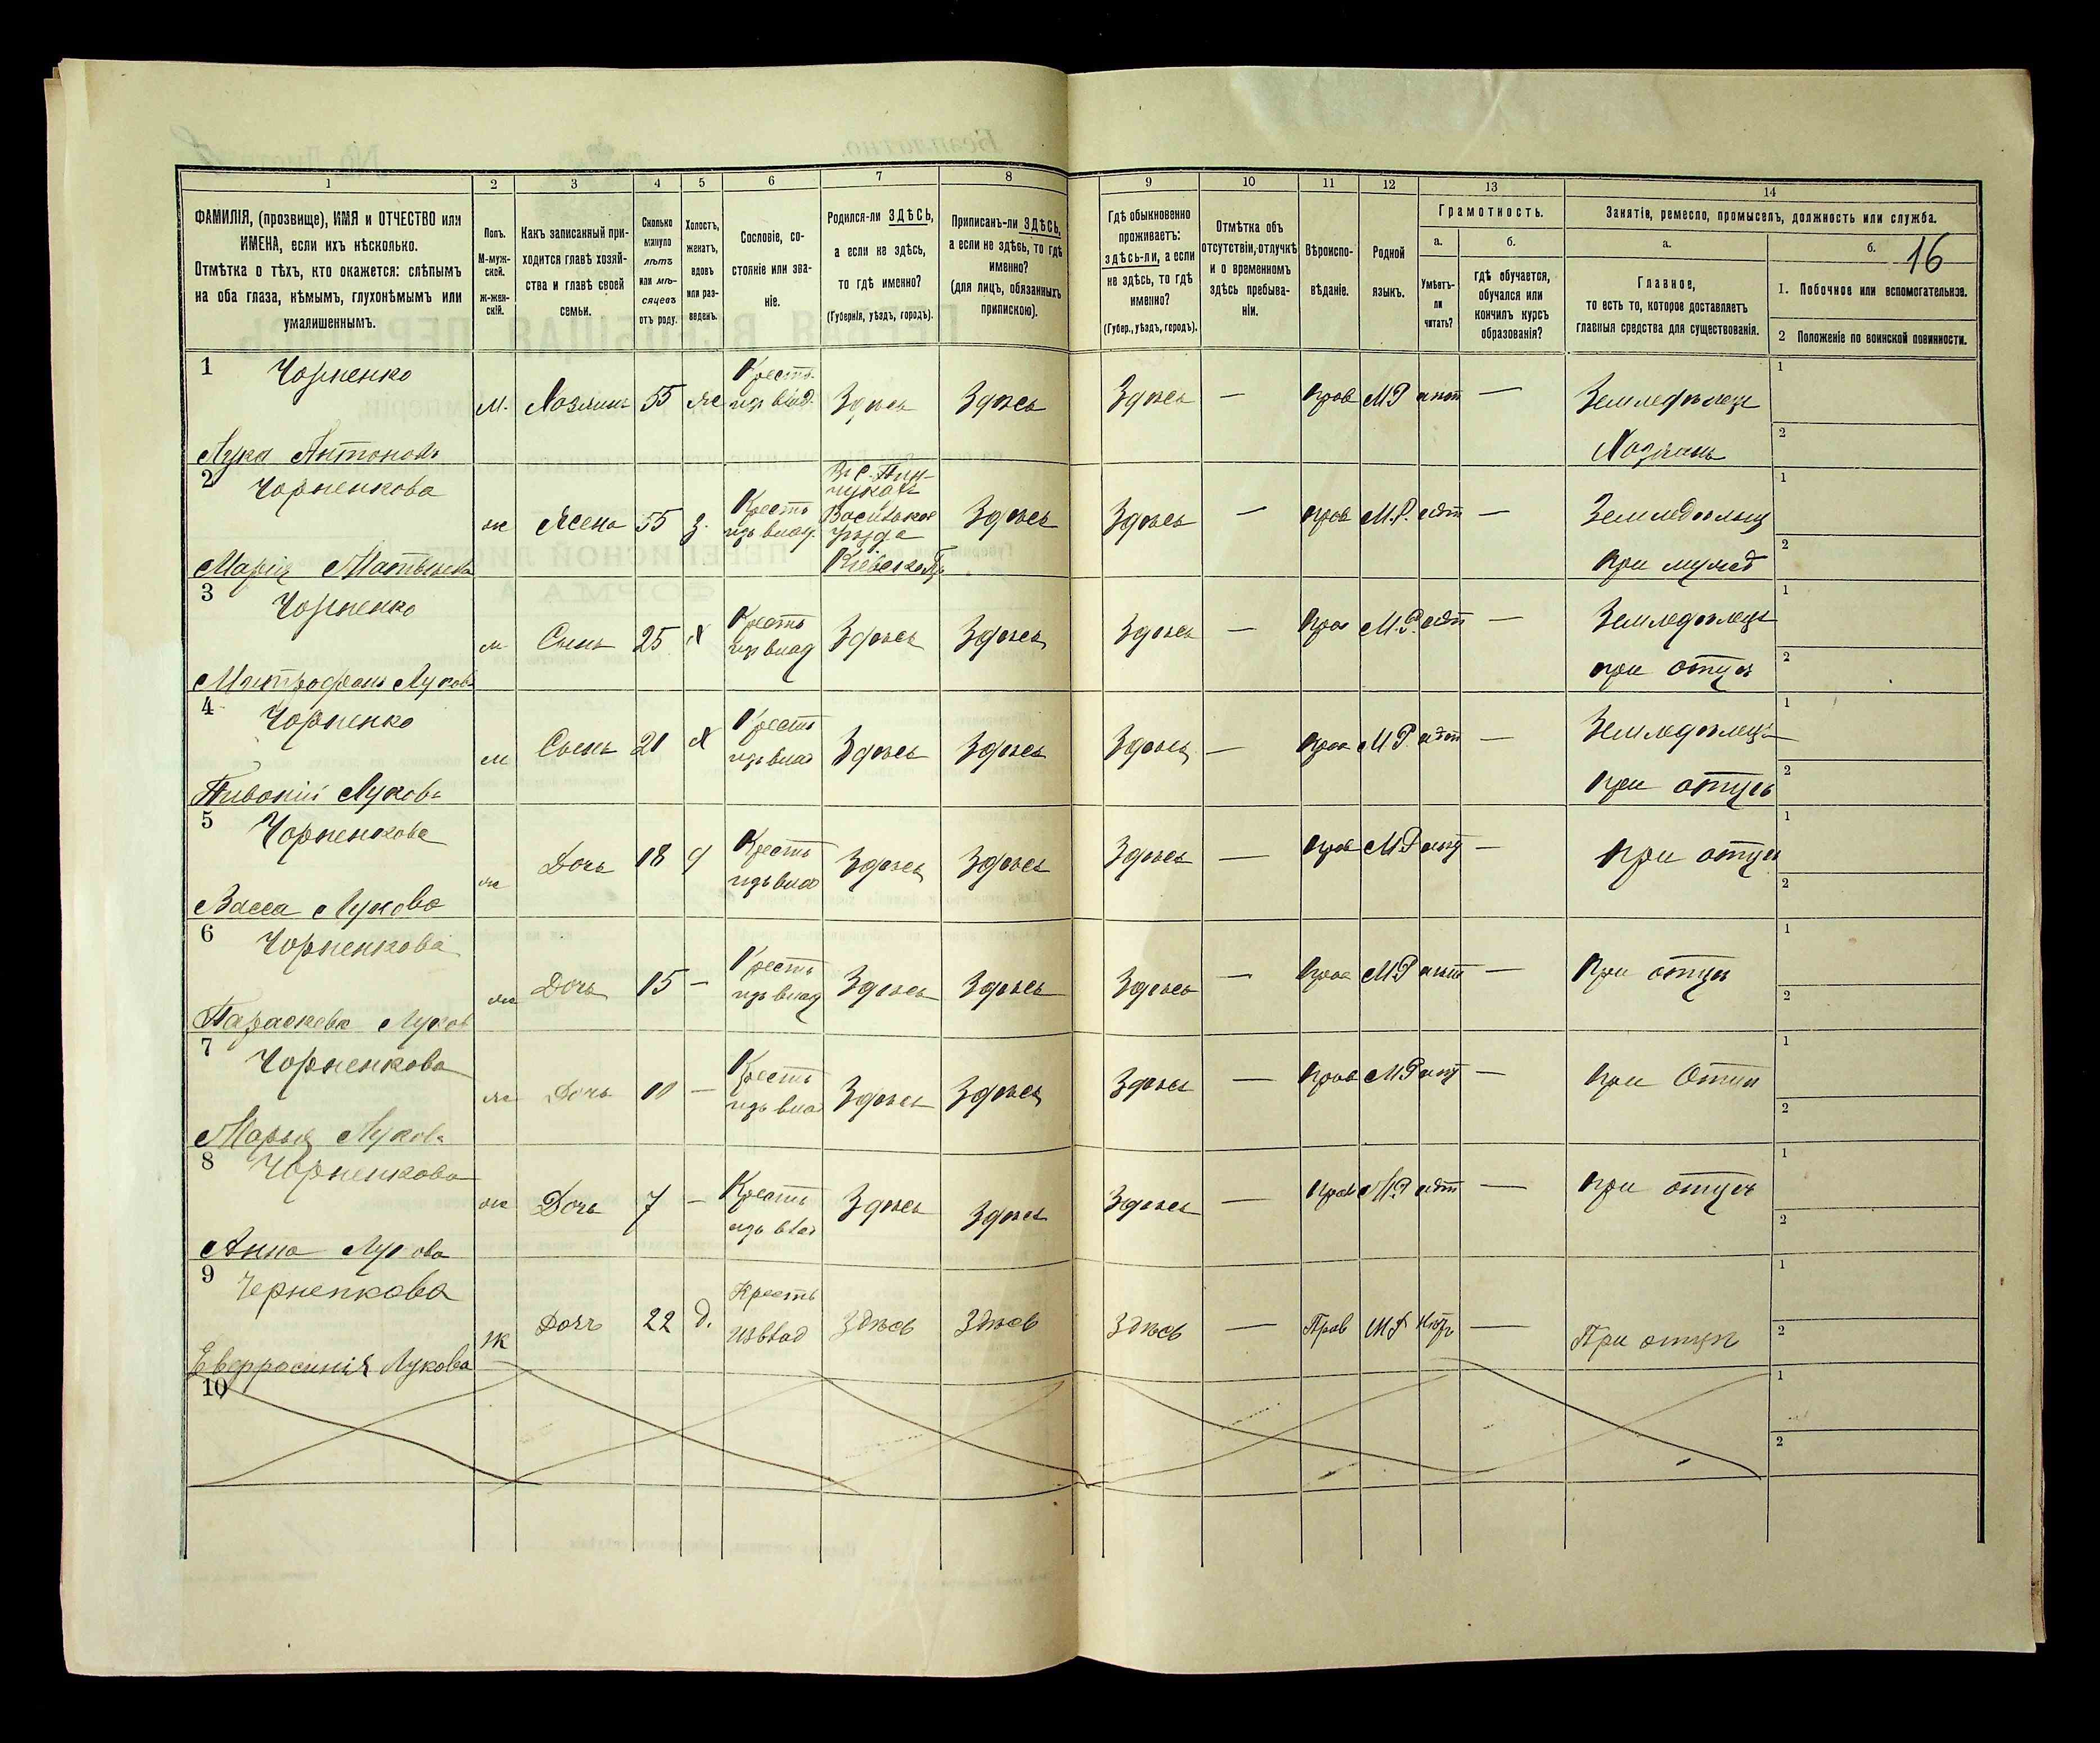 1 2 3 4 5 6 7 8 9 10 11 12 13 14
ФАМИЛІЯ, (прозвище), ИМЯ и ОТЧЕСТВО или
ИМЕНА, если ихъ нѣсколько.
Отмѣтка о тѣхъ, кто окажется: слѣпымъ
на оба глаза, нѣмымъ, глухонѣмымъ или
умалишеннымъ.
Полъ.
М-муж-
ской.
Ж-жен-
скій.
Какъ записанный при-
ходится главѣ хозяй-
ства и главѣ своей
семьи.
Сколько
минуло
лѣтъ
или мѣ-
сяцевъ
отъ роду.
Холостъ,
женатъ,
вдовъ
или раз-
веденъ.
Сословіе, со-
стояніе или зва-
ніе.
Родился-ли ЗДѢСЬ,
а если не здѣсь,
то гдѣ именно?
(Губернія, уѣздъ, городъ).
Приписанъ-ли ЗДѢСЬ,
а если не здѣсь, то гдѣ
именно?
(для лицъ, обязанныхъ
припискою).
Гдѣ обыкновенно
проживаетъ:
здѣсь-ли, а если
не здѣсь, то гдѣ
именно?
(Губер., уѣздъ, городъ).
Отмѣтка объ
отсутствіи, отлучкѣ
и о временномъ
здѣсь пребыва-
ніи.
Вѣроиспо-
вѣданіе.
Родной
языкъ.
Грамотность.
а.
Умѣетъ-
ли
читать?
б.
гдѣ обучается,
обучался или
кончилъ курсъ
образованія?
Занятіе, ремесло, промыселъ, должность или служба.
а.
Главное,
то есть то, которое доставляетъ
главныя средства для существованія.
б.
16
1. Побочное или вспомогательное.
2 Положеніе по воинской повинности.
1 Чорненко
Лука Антоновъ
М. Хозяинъ 55 же
Крестъ.
изъ влад.
Здѣсь Здѣсь Здѣсь — прав М.Р нѣт —
Земледѣлецъ
Хозяинъ
1
2
2 Чорненкова
Марія Матвѣева
ж Жена 55 з.
Кресть
изъ влад.
Васильков
уѣзда
Кіевской Гу
Здѣсь Здѣсь — прав М.Р. нѣт —
Земледѣлец
при мужѣ
1
2
3 Чорненко
Митрофанъ Луковъ
м Сынъ 25 х
Кресть
изъ влад
Здѣсь Здѣсь Здѣсь — прав М.Р. нѣт —
Земледѣлецъ
при отцѣ
1
2
4 Чорненко
Луковъ
м Сынъ 21 х
Кресть
изъ влад
Здѣсь Здѣсь Здѣсь — прав М.Р. нѣт
Земледѣлецъ
при отцѣ
1
2
5 Чорненкова
Васса Лукова
ж Дочь 18 д
Кресть
изъ влад
Здѣсь Здѣсь Здѣсь — прав М.Р нѣт —
при отцѣ
1
2
6 Чорненкова
Параскева Луков
ж Дочь 15 —
Кресть
изъ влад
Здѣсь Здѣсь Здѣсь — прав М.Р нѣт —
при отцѣ
1
2
7 Чорненкова
Марья Луков
ж Дочь 10 —
Кресть
изъ влад
Здѣсь Здѣсь Здѣсь — прав М.Р нѣт —
при Отцѣ
1
2
8 Чорненкова
Анна Лукова
ж Дочь 7 —
Кресть
изъ влад
Здѣсь Здѣсь Здѣсь — прав М.Р нѣт —
при отцѣ
1
2
9 Черненкова
Еверросинія Лукова
ж Дочь 22 д.
Кресть
изъ влад
Здѣсь Здѣсь Здѣсь — Прав М.Р нѣт —
При отцѣ
1
2
10
1
2